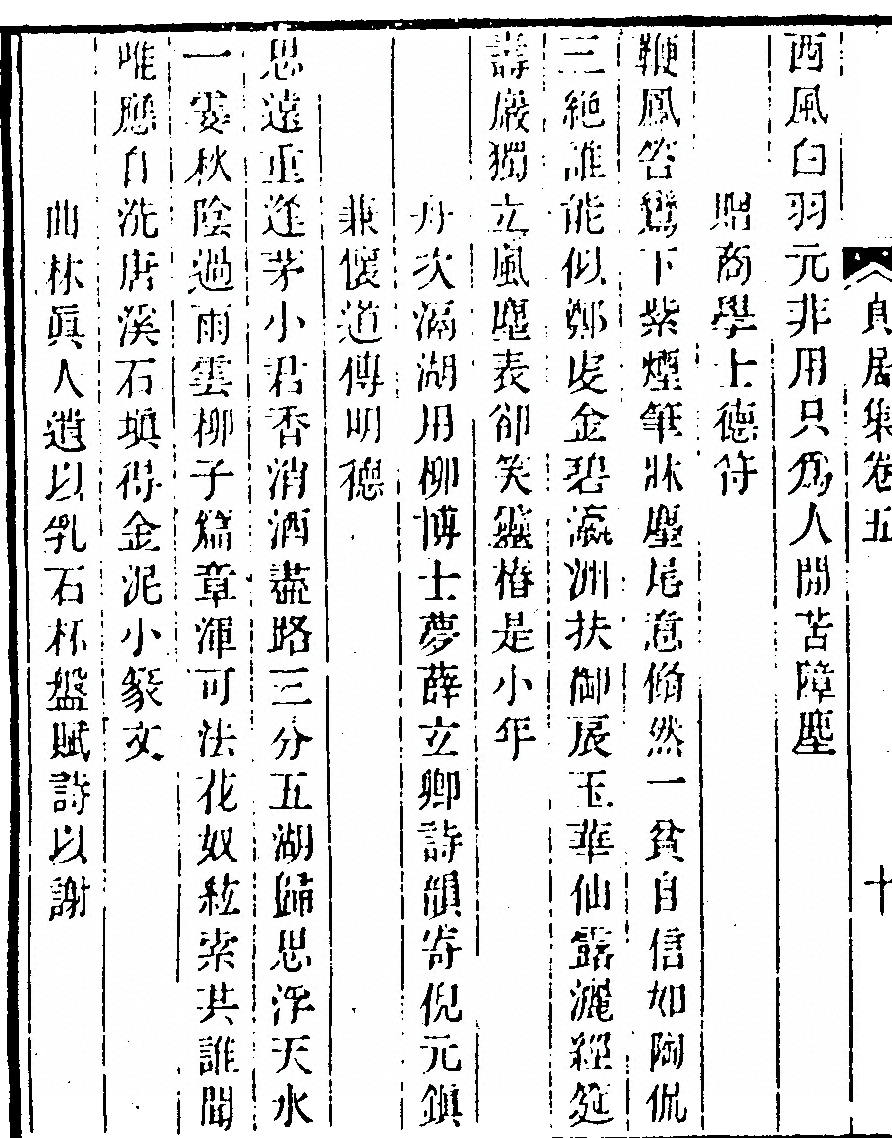 貞居集卷五 十
西風白羽元非用只爲人間苦障塵
贈商學士德符
鞭鳳笞鸞下紫煙筆牀麈尾意翛然一貧自信如陶侃
三絶誰能似鄭虔金碧瀛洲扶御扆玉華仙露灑經筵
壽巖獨立風塵表卻笑靈椿是小年
舟次滆湖用柳博士夢薛立卿詩韻寄倪元鎮
兼懷道傳明德
思遠重逢茅小君香消酒盡路三分五湖歸思浮天水
一霎秋陰過雨雲柳子篇章渾可法花奴絃索共誰聞
唯應自洗唐溪石塡得金泥小篆文
曲林眞人遺以乳石杯盤賦詩以謝